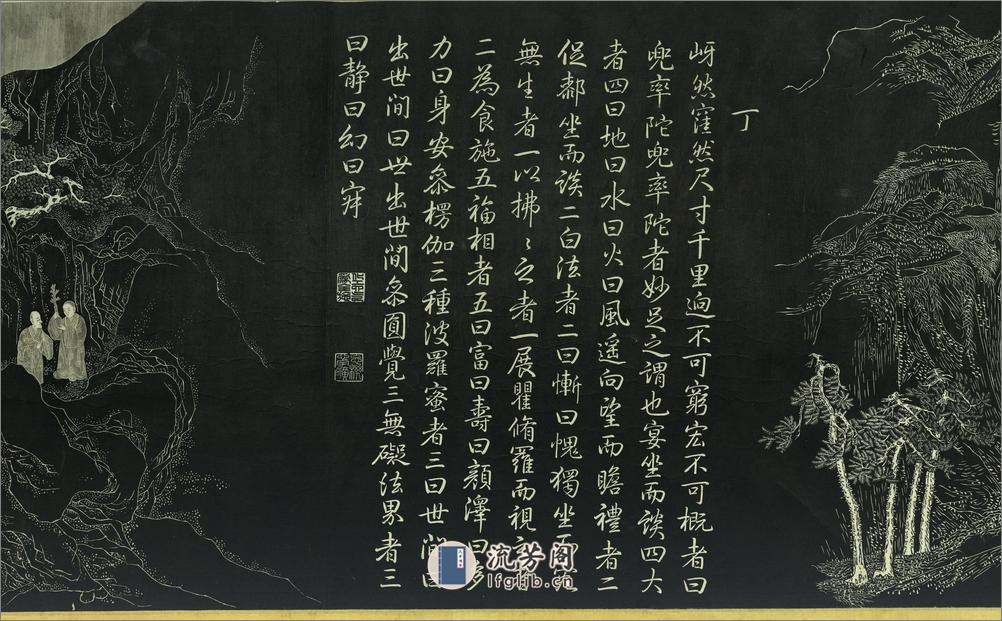 丁
岈然窪然尺寸千里逈不可窮宏不可概者曰
兜率陀兜率陀者妙足之謂也宴坐而談四大
者四曰地曰水曰火曰風遥向望而瞻禮者二
促鄰坐而談二白法者二曰慚曰愧獨坐
無生者一以拂〻之者一展瞿脩羅而視
二為食施五福相者五曰富曰壽曰顏澤曰多
力曰身安叅楞伽三種波羅蜜者三曰世間曰
出世間曰世出世間叅圓覺三無礙法界者三
曰靜曰幻曰寂
流芳阁
lfglib.cn